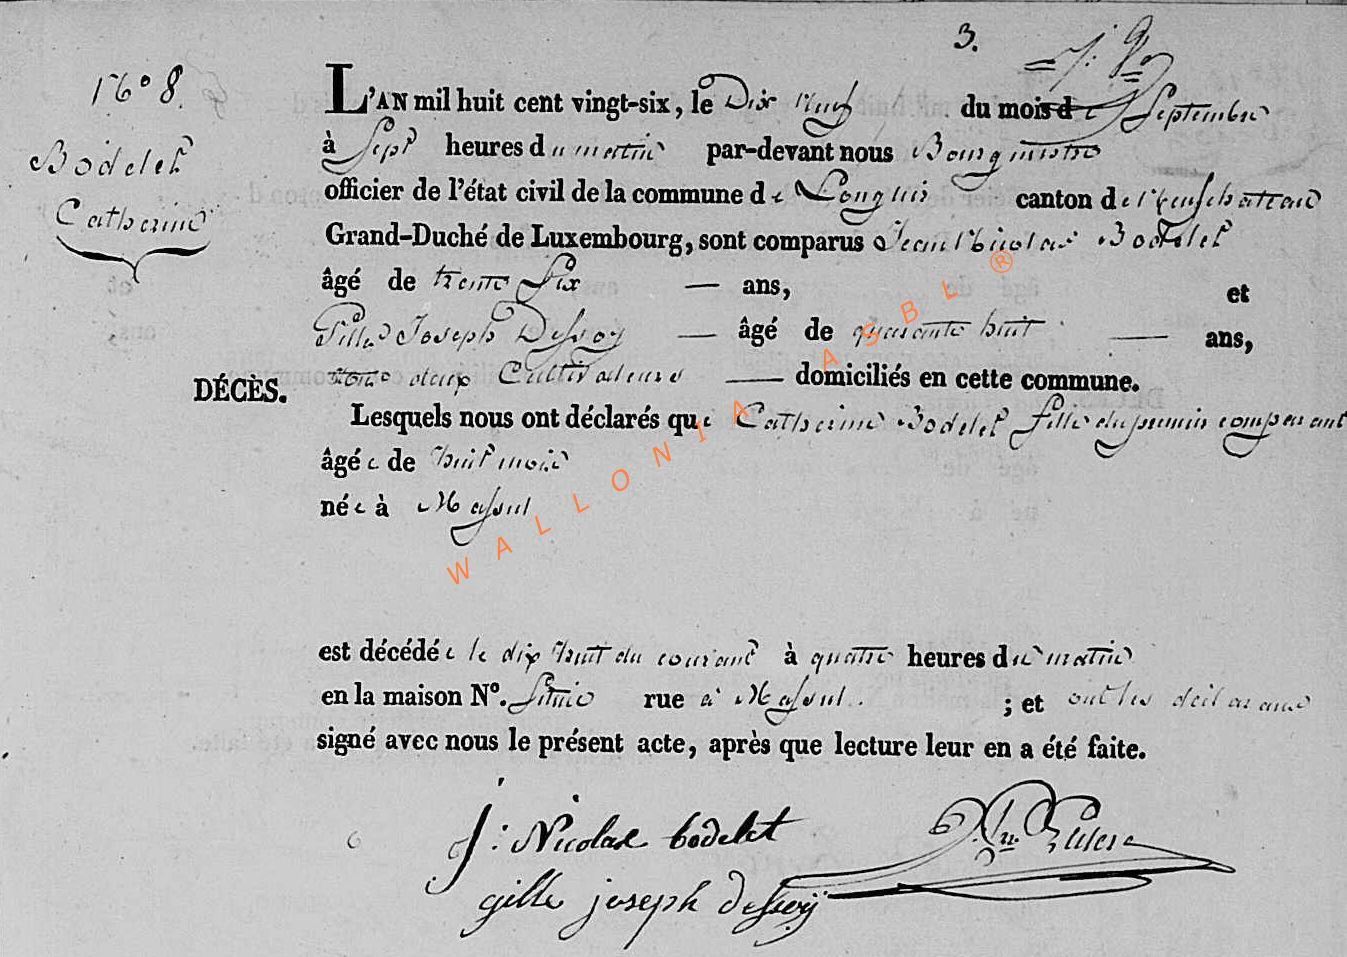 3.
N° 8.
Bodelet
Catherine
L'AN mil huit cent vingt-six, le Dix Neuf du mois de Septembre
à Sept heures du matin par-devant nous Bourgmestre
officier de l'état civil de la commune de Longlier canton de Neufchateau
Grand-Duché de Luxembourg, sont comparus Jean Nicolas Bodelet
âgé de trente Six — ans, et
Gille Joseph Dessoy — âgé de quarante huit — ans,
tous deux Cultivateurs — domiciliés en cette commune.
DÉCÈS.
Lesquels nous ont déclarés que Catherine Bodelet fille du premier comparant
âgée de huit mois
née à Massul
est décédée le dix huit du courant à quatre heures du matin
en la maison N°. Située rue à Massul. ; et ont les déclarans
signé avec nous le présent acte, après que lecture leur en a été faite.
J: Nicolas bodelet
gille joseph dessoÿ
WALLONIA ASBL ®